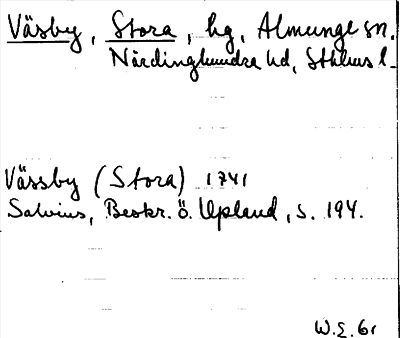 Väsby, Stora, hg, Almunge sn.
Närdinghundra hd, Sthlms l.
Vässby (Stora) 1741
Salvius, Beskr. ö. Upland, s. 194.
W.E. 61